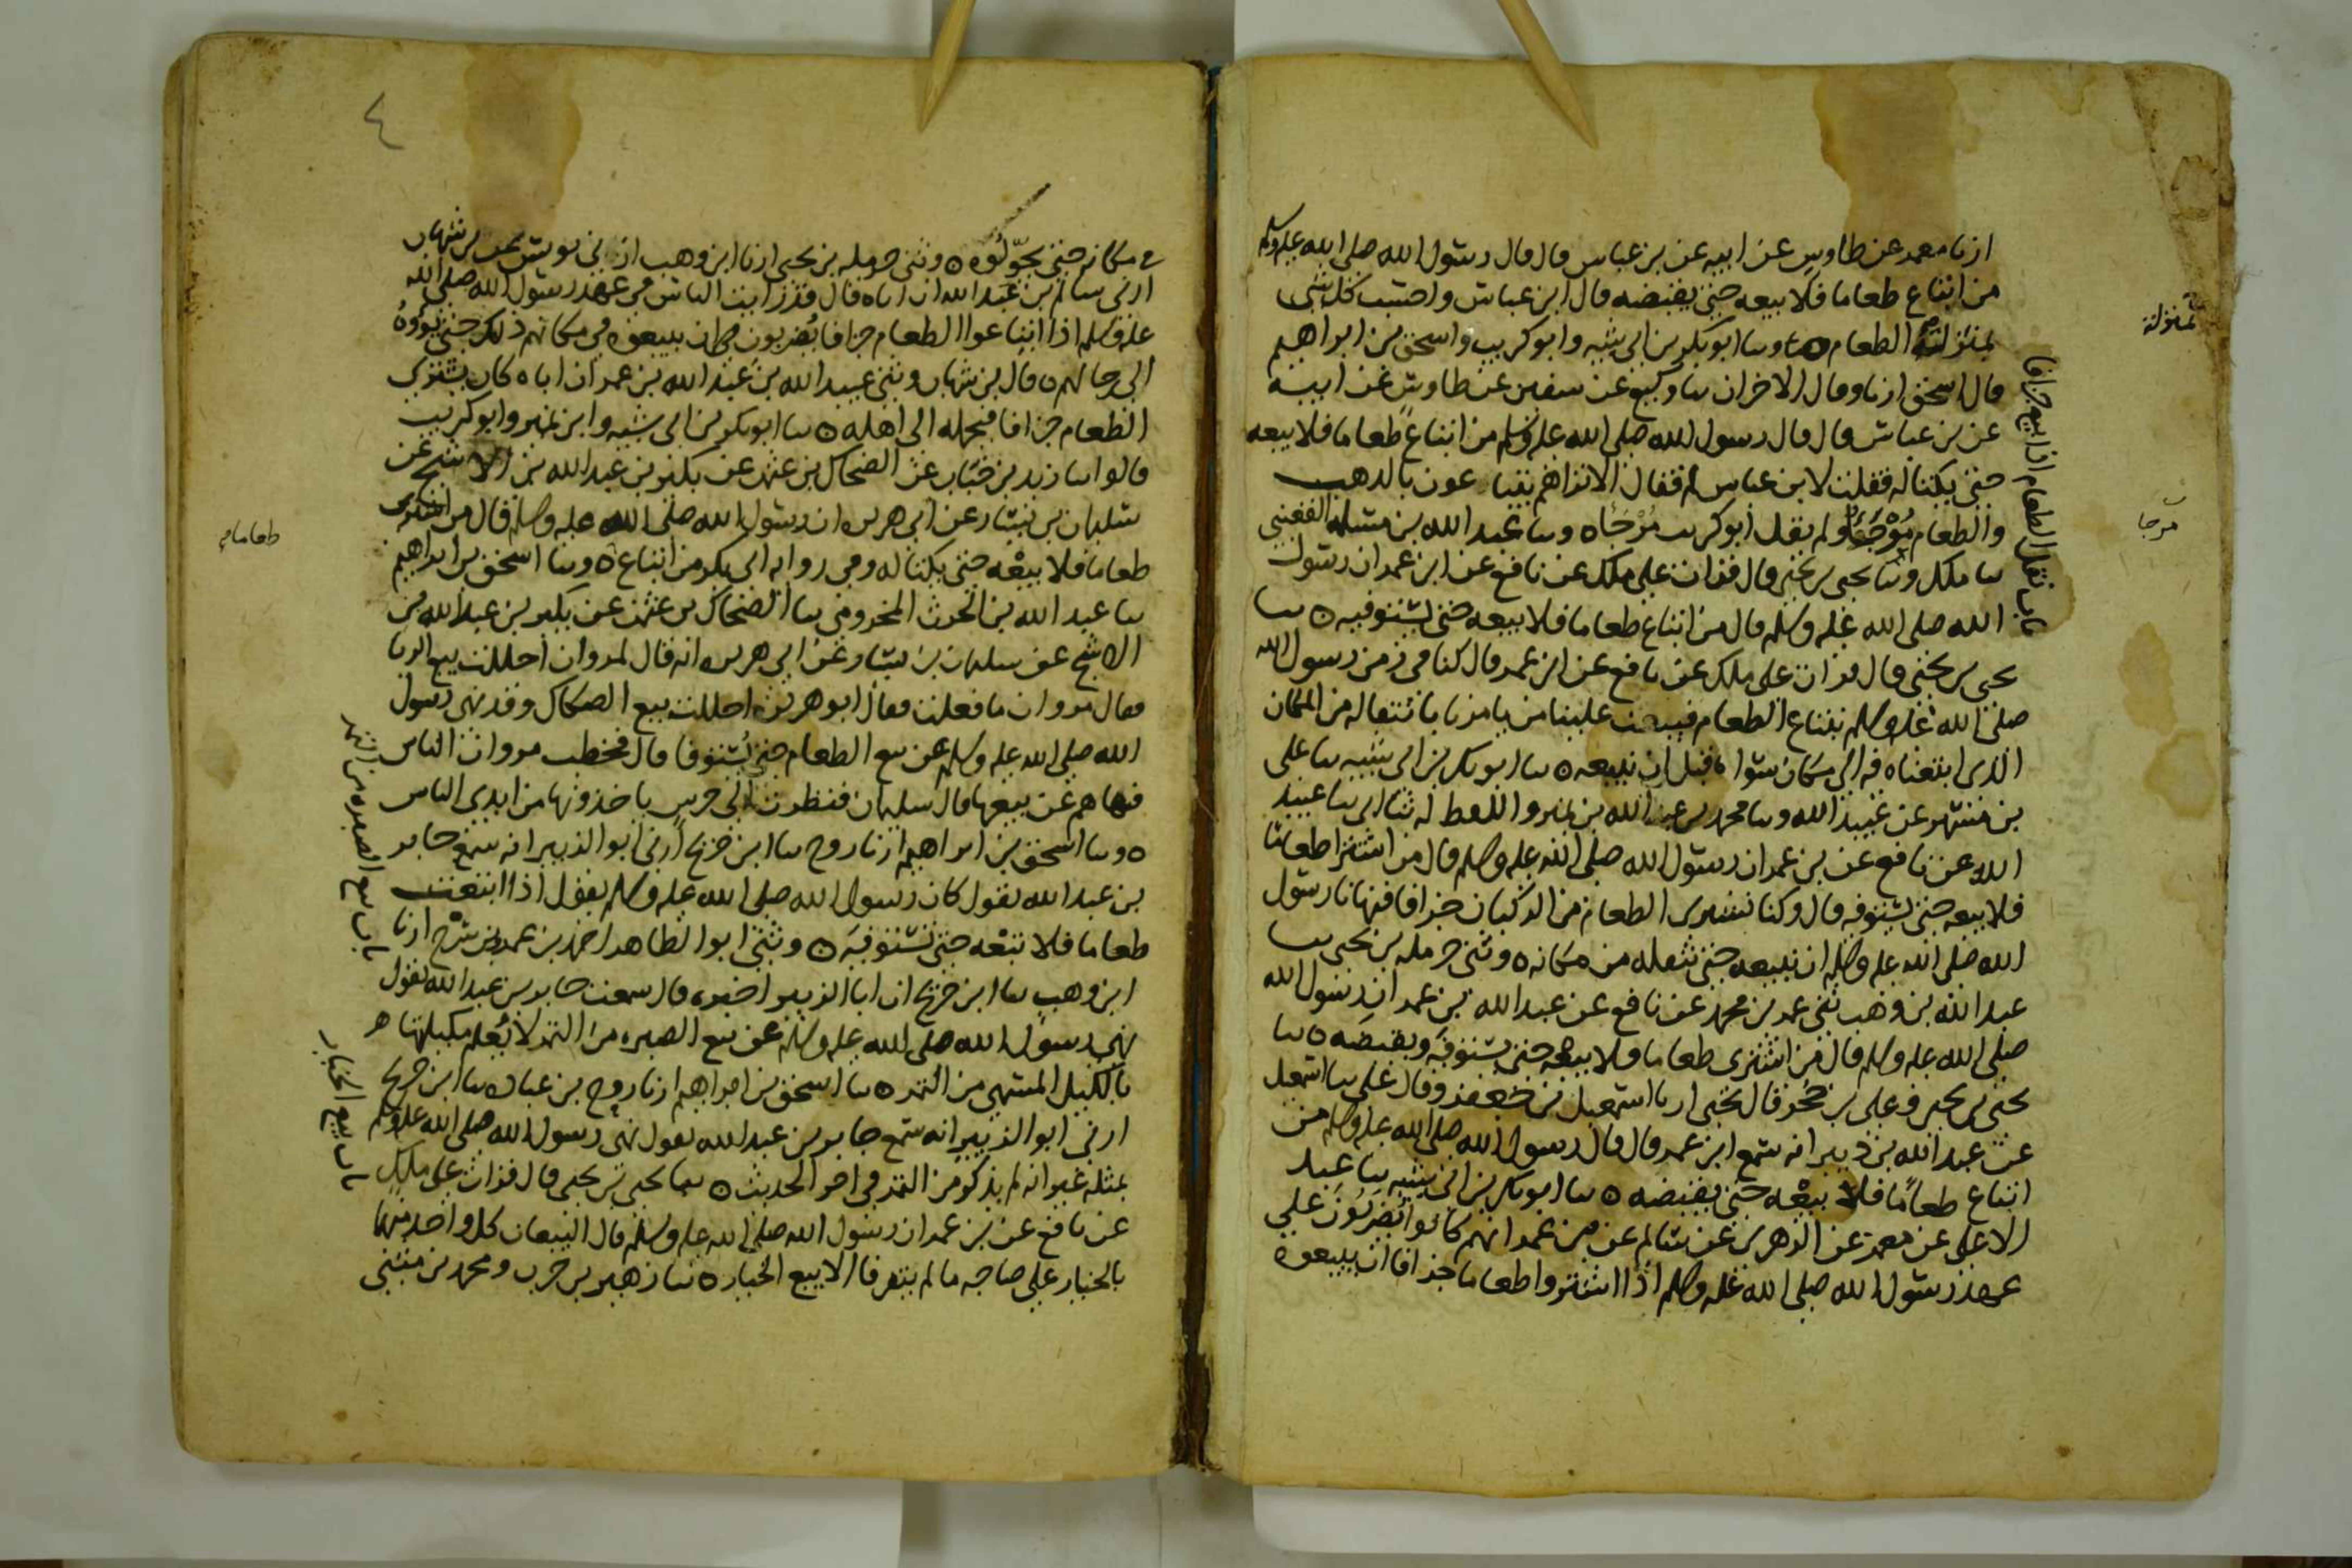 ارنا معمر عن طاوس عن ابيه عن بن عباس قال قال رسول الله صلى الله عليه وسلم
من ابتاع طعاما فلا يبعه حتى يقبضه قال ابن عباس واحسب كل شى
بمنزلة الطعام وسا ابو بكر بن ابى شيبه وابو كريب واسحق بن ابراهيم
قال اسحق ارنا وقال الاخران سا وكيع عن سفين عن طاوس عن ابيه
عن بن عباس قال قال رسول الله صلى الله عليه وسلم من ابتاع طعاما فلا يبعه
حتى يكتاله فقلت لابن عباس لم فقال الا تراهم يتبا عون بالدهب
والطعام مرجأ ولم يقل ابو كريب مرجأ ه وسا عبد الله بن مسلمه القعنبى
سا ملك وسا يحيى بن يحيى قال قرات على ملك عن نافع عن ابن عمر ان رسول
الله صلى الله عليه وسلم قال من ابتاع طعاما فلا يبعه حتى يستوفيه ه سا
يحيى بن يحيى قال قرات على ملك عن نافع عن ابن عمر قال كنا فى زمن رسول الله
صلى الله عليه وسلم نبتاع الطعام فيبعث علينا من يامرنا بانتقاله من المكان
الذى ابتعناه فيه الى مكان سواه قبل ان نبيعه ه سا ابو بكر بن ابى شيبه سا على
بن مسهر عن عبيد الله وسا محمد بن عبد الله بن نمير واللفظ له سا ابى سا عبيد
الله عن نافع عن بن عمر ان رسول الله صلى الله عليه وسلم قال من اشترا طعاما
فلا يبعه حتى يستوفيه قال وكنا نشترى الطعام من الركبان جزافا فنهانا رسول
الله صلى الله عليه وسلم ان نبيعه حتى ننقله من مكانه ه وثنى حرمله بن يحيى سا
عبد الله بن وهب ثنى عمر بن محمد عن نافع عن عبد الله بن عمر ان رسول الله
صلى الله عليه وسلم قال من اشترى طعاما فلا يبعه حتى يستوفيه ويقبضه ه سا
يحيى بن يحيى وعلى بن حجر قال يحيى ارنا اسمعيل بن جعفر وقال على سا اسمعيل
عن عبد الله بن دينار انه سمع ابن عمر قال قال رسول الله صلى الله عليه وسلم من
ابتاع طعاما فلا يبعه حتى يقبضه ه سا ابو بكر بن ابى شيبه سا عبد
الاعلى عن معمر عن الزهرى عن سالم عن بن عمر انهم كانوا يضربون على
عهد رسول الله صلى الله عليه وسلم اذا اشتروا طعاما جزافا ان يبيعوه
باب نقل الطعام اذا بيع جزافا
بمنزلة
مرجا
٤
فى مكانه حتى يحولوه ه وثنى حرمله بن يحيى ارنا ابن وهب ارنى يونس عن بن شهاب
ارنى سالم بن عبد الله ان اباه قال قد رايت الناس فى عهد رسول الله صلى الله
عليه وسلم اذا ابتاعوا الطعام جزافا يضربون فى ان يبيعوه فى مكانهم ذلك حتى يؤوه
الى رحالهم ه قال بن شهاب وثنى عبيد الله بن عبد الله بن عمر ان اباه كان يشترى
الطعام جزافا فيحمله الى اهله ه سا ابو بكر بن ابى شيبه وابن نمير وابو كريب
قالوا سا زيد بن حباب عن الضحاك بن عثمن عن بكير بن عبد الله بن الاشج عن
سليمان بن يسار عن ابى هريره ان رسول الله صلى الله عليه وسلم قال من اشترى
طعاما فلا يبعه حتى يكتاله وفى روايه ابى بكر من ابتاع ه وسا اسحق بن ابراهيم
سا عبد الله بن الحرث المخزومى سا الضحاك بن عثمن عن بكير بن عبد الله بن
الاشج عن سليمان بن يسار عن ابى هريره انه قال لمروان احللت بيع الربا
فقال مروان ما فعلت فقال ابو هريره احللت بيع الصكاك وقد نهى رسول
الله صلى الله عليه وسلم عن بيع الطعام حتى يستوفا قال فخطب مروان الناس
فنهاهم عن بيعها قال سليمان فنظرت الى حرس ياخذونها من ايدى الناس
ه وسا اسحق بن ابراهيم ارنا روح سا ابن جريج ارنى ابو الزبير انه سمع جابر
بن عبد الله يقول كان رسول الله صلى الله عليه وسلم يقول اذا ابتعت
طعاما فلا تبعه حتى تستوفيه ه وثنى ابو الطاهر احمد بن عمرو بن سرح ارنا
ابن وهب سا ابن جريج ان ابا الزبير اخبره قال سمعت جابر بن عبد الله يقول
نهى رسول الله صلى الله عليه وسلم عن بيع الصبره من التمر لا يعلم مكيلتها
بالكيل المسمى من التمر ه سا اسحق بن ابراهيم ارنا روح بن عباده سا ابن جريج
ارنى ابو الزبير انه سمع جابر بن عبد الله يقول نهى رسول الله صلى الله عليه وسلم
بمثله غير انه لم يذكر من التمر فى اخر الحديث ه سا يحيى بن يحيى قال قرات على ملك
عن نافع عن بن عمر ان رسول الله صلى الله عليه وسلم قال البيعان كل واحد منهما
بالخيار على صاحبه ما لم يتفرقا الا بيع الخيار ه سا زهير بن حرب ومحمد بن مثنى
طعاما
باب بيع الصبره من التمر
باب بيع الخيار